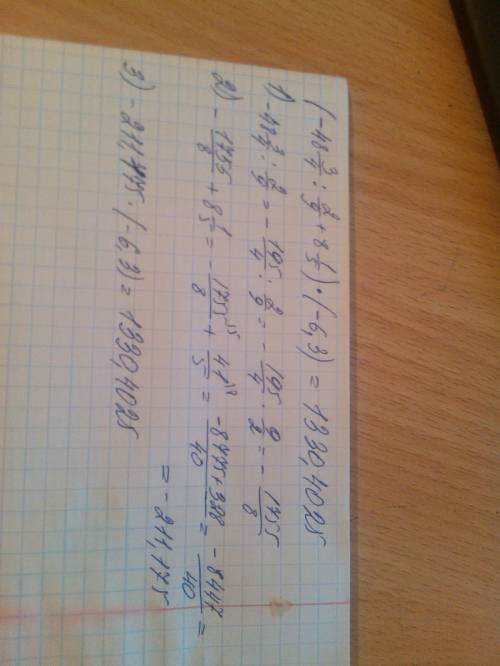 (-48 3/4 : 2/9 + 8 1/5) · (-6,3) = 1330,4025
1) -48 3/4 : 2/9 = - 195/4 : 2/9 = - 195/4 · 9/2 = - 1755/8
2) - 1755/8 + 8 1/5 = - 1755/8 \5 + 41/5 \8 = -8775+328/40 = -8447/40 =
= -211,175
3) -211,175 · (-6,3) = 1330,4025